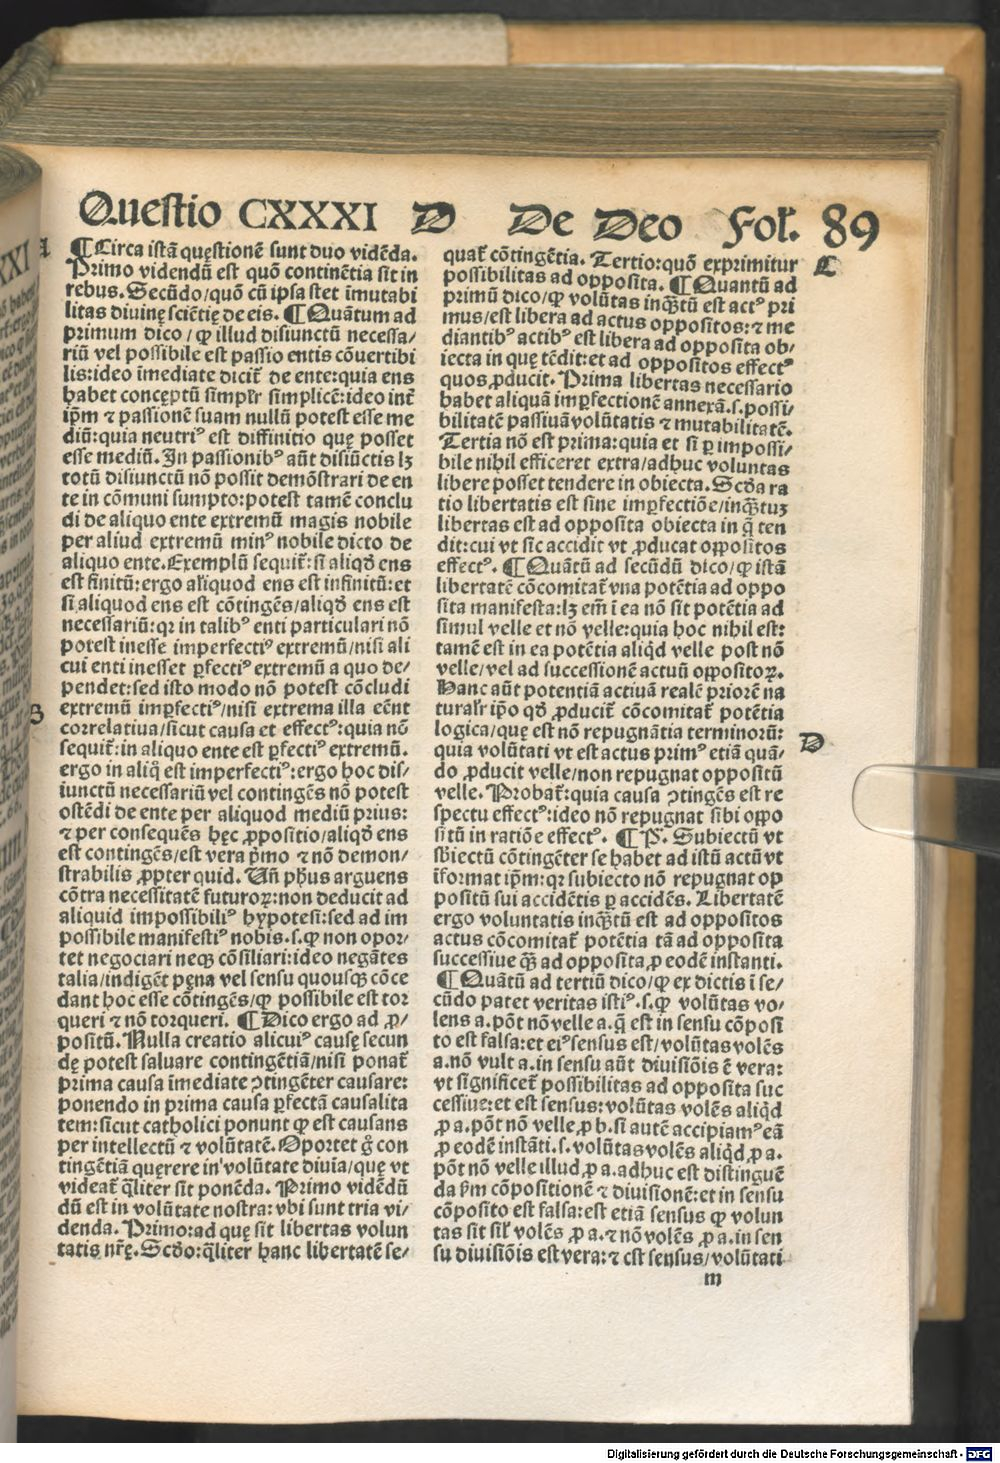 Questio CXXXI D De Deo Fol̃. 89
A
¶Circa istã quęstionẽ sunt duo vidẽda.
Primo videndũ est quõ continẽtia sit in
rebus. Secũdo/quõ cũ ipsa stet ĩmutabi
litas diuinę sciẽtię de eis. ¶Quãtum ad
primum dico/ ꝙ illud disiunctũ necessa/
riũ vel possibile est passio entis cõuertibi
lis:ideo ĩmediate dicit̃ de ente:quia ens
habet concęptũ simpl̃r simplicẽ:ideo int̃
ip̃m ⁊ passionẽ suam nullũ potest esse me
diũ:quia neutriꝰ est diffinitio quę posset
esse mediũ. In passionibꝰ aũt disiũctis lꝫ
totũ disiunctũ nõ possit demõstrari de en
te in cõmuni sumpto:potest tamẽ conclu
di de aliquo ente extremũ magis nobile
per aliud extremũ minꝰ nobile dicto de
aliquo ente. Exemplũ sequit̃: si aliqđ ens
est finitũ: ergo aliquod ens est infinitũ: et
si aliquod ens est cõtingẽs/aliqđ ens est
necessariũ: qꝛ in talibꝰ enti particulari nõ
potest inesse imperfectiꝰ extremũ/nisi ali
cui enti inesset ꝑfectiꝰ extremũ a quo de/
pendet:sed isto modo nõ potest cõcludi
B
extremũ imꝑfectiꝰ/nisi extrema illa eẽnt
correlatiua/sicut causa et effectꝰ:quia nõ
sequit̃: in aliquo ente est ꝑfectiꝰ extremũ.
ergo in aliq̃ est imperfectiꝰ: ergo hoc dis/
iunctũ necessariũ vel contingẽs nõ potest
ostẽdi de ente per aliquod mediũ prius:
⁊ per consequẽs hęc ꝓpositio/aliqđ ens
est contingẽs/est vera p̃mo ⁊ nõ demon/
strabilis ꝓpter quid. Uñ ph̃us arguens
cõtra necessitatẽ futuroꝝ:non deducit ad
aliquid impossibiliꝰ hypotesi:sed ad im
possibile manifestiꝰ nobis.s.ꝙ non opor/
tet negociari neqꝫ cõsiliari:ideo negãtes
talia/indigẽt pęna vel sensu quousqꝫ cõce
dant hoc esse cõtingẽs/ꝙ possibile est tor
queri ⁊ nõ torqueri. ¶Dico ergo ad ꝓ/
positũ. Nulla creatio alicuiꝰ causę secun
dę potest saluare contingẽtiã/nisi ponat̃
prima causa ĩmediate ↄtingẽter causare:
ponendo in prima causa ꝑfectã causalita
tem:sicut catholici ponunt ꝙ est causans
per intellectũ ⁊ volũtatẽ. Oportet g̃ con
tingẽtiã quęrere in volũtate diuia/quę vt
videat̃ q̃liter sit ponẽda. Primo vidẽdũ
dũ est in volũtate nostra: vbi sunt tria vi/
denda. Primo:ad quę sit libertas volun
tatis nr̃ę. Scđo:q̃liter hanc libertatẽ se/
quat̃ cõtingẽtia. Tertio:quõ exprimitur
C
possibilitas ad opposita. ¶Quantũ ad
primũ dico/ꝙ volũtas inq̃ꝫtũ est actꝰ pri
mus/est libera ad actus oppositos:⁊ me
diantibꝰ actibꝰ est libera ad opposita ob/
iecta in quę tẽdit:et ad oppositos effectꝰ
quos ꝓducit. Prima libertas necessario
habet aliquã imꝑfectionẽ annexã.s.possi/
bilitatẽ passiuã volũtatis ⁊ mutabilitatẽ.
Tertia nõ est prima:quia et si ꝑ impossi/
bile nihil efficeret extra/adhuc voluntas
libere posset tendere in obiecta. Scđa ra
tio libertatis est sine imꝑfectiõe/inq̃ꝫtuꝫ
libertas est ad opposita obiecta in q̃ ten
dit:cui vt sic accidit vt ꝓducat oppositos
effectꝰ. ¶Quãtũ ad secũdũ dico/ꝙ istã
libertatẽ cõcomitat̃ vna potẽtia ad oppo
sita manifesta:lꝫ em̃ ĩ ea nõ sit potẽtia ad
simul velle et nõ velle:quia hoc nihil est:
tamẽ est in ea potẽtia aliqđ velle post nõ
velle/vel ad successionẽ actuũ oppositoꝝ.
Hanc aũt potentiã actiuã realẽ priorẽ na
tural̃r ip̃o qđ ꝓducit̃ cõcomitat̃ potẽtia
logica/quę est nõ repugnãtia terminorũ:
D
quia volũtati vt est actus primꝰ etiã quã/
do ꝓducit velle/non repugnat oppositũ
velle. Probat̃:quia causa ↄtingẽs est re
spectu effectꝰ:ideo nõ repugnat sibi oppo
sitũ in ratiõe effectꝰ. ¶P̃. Subiectũ vt
sb̃iectũ cõtingẽter se habet ad istũ actũ vt
ĩformat ip̃m: qꝛ subiecto nõ repugnat op
positũ sui accidẽtis ꝑ accidẽs. Libertatẽ
ergo voluntatis inq̃ꝫtũ est ad oppositos
actus cõcomitat̃ potẽtia tã ad opposita
successiue q̃ꝫ ad opposita ꝓ eodẽ instanti.
¶Quãtũ ad tertiũ dico/ꝙ ex dictis ĩ se/
cũdo patet veritas istiꝰ.s.ꝙ volũtas vo/
lens a.põt nõ velle a.q̃ est in sensu cõposi
to est falsa:et eiꝰ sensus est/volũtas volẽs
a.nõ vult a.in sensu aũt diuisiõis ẽ vera:
vt significet̃ possibilitas ad opposita suc
cessiue:et est sensus:volũtas volẽs aliqđ
ꝓ a.põt nõ velle ꝓ b.si autẽ accipiamꝰ eã
ꝓ eodẽ instãti.s.volũtas volẽs aliqđ ꝓ a.
põt nõ velle illud ꝓ a.adhuc est distinguẽ
da ẜm cõpositionẽ ⁊ diuisionẽ:et in sensu
cõposito est falsa:est etiã sensus ꝙ volun
tas sit sil̃ volẽs ꝓ a.⁊ nõ volẽs ꝓ a.in sen
su diuisiõis est vera:⁊ est sensus/volũtati
m
Digitalisierung gefördert durch die Deutsche Forschungsgemeinschaft - DFG